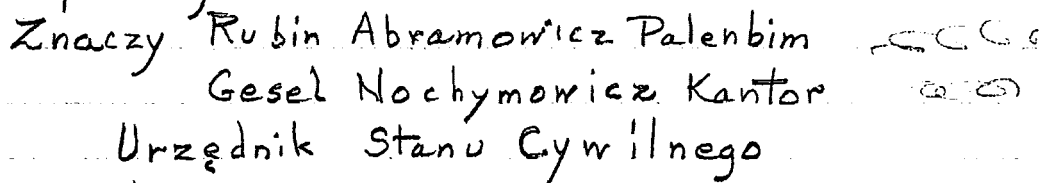 Znaczy Rubin Abramowicz Palenbim
Gesel Nochymowicz Kantor
Urzędnik Stanu Cywilnego